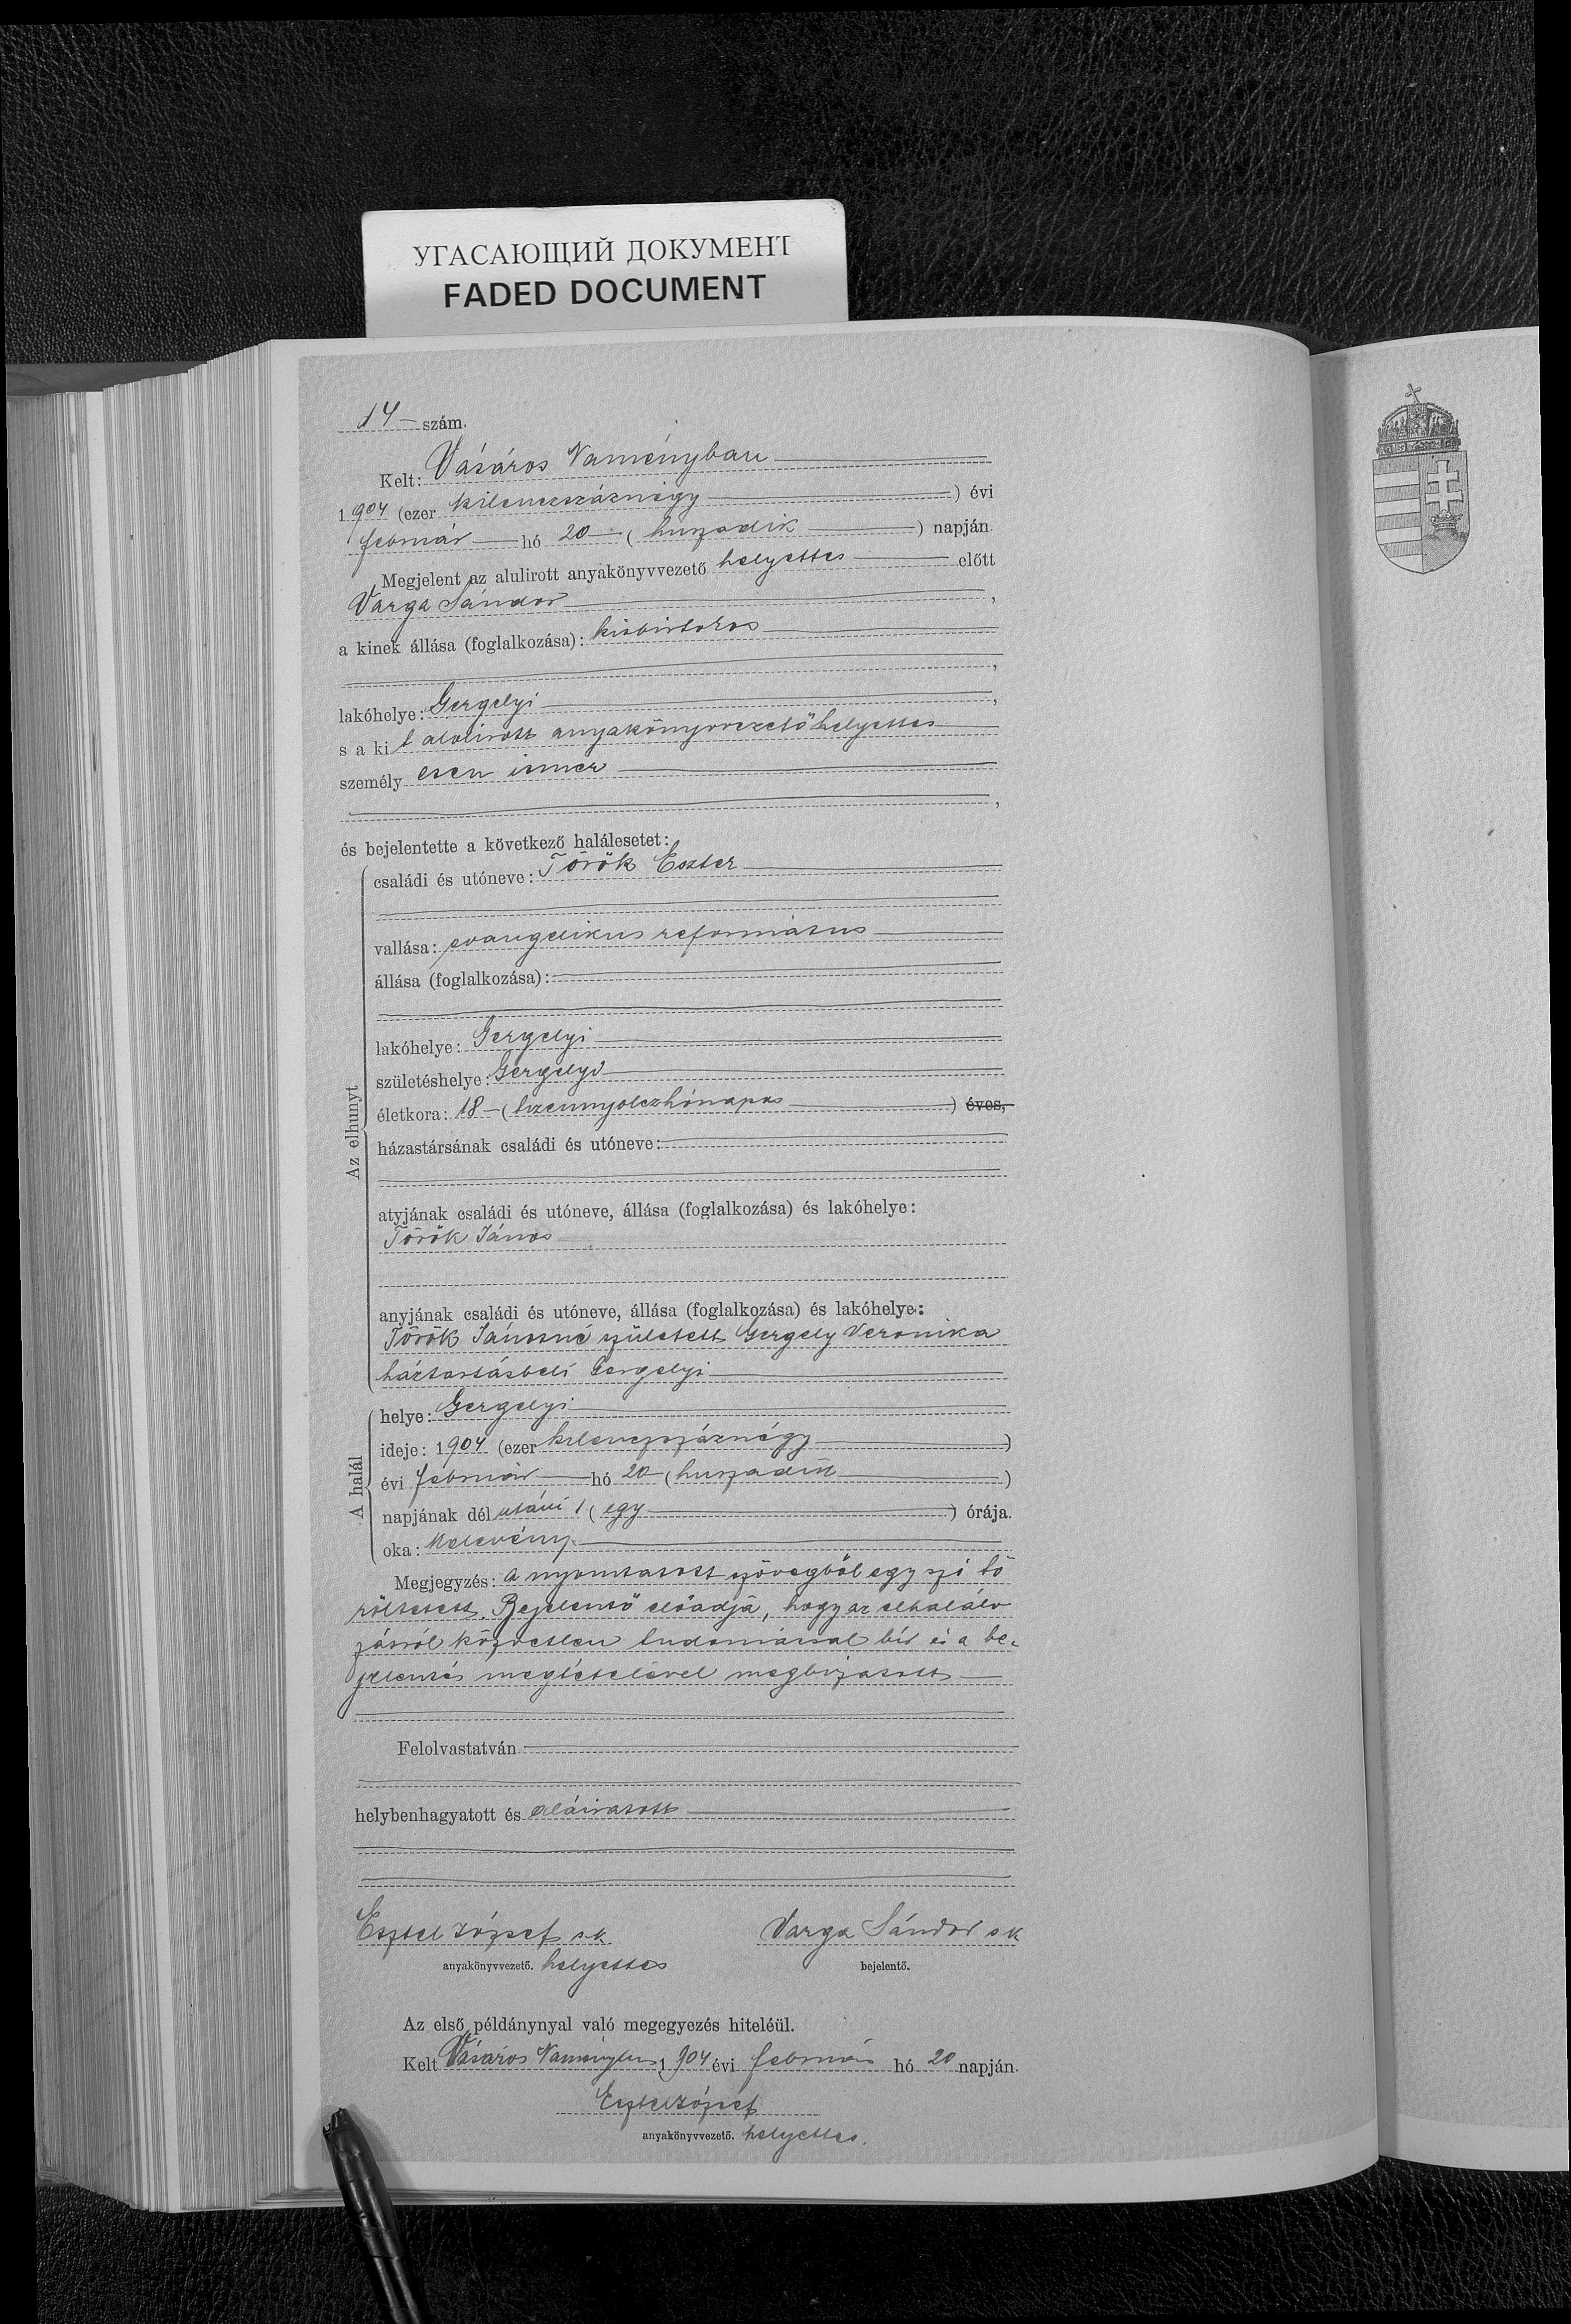 УГАСАЮЩИЙ ДОКУМЕНТ
FADED DOCUMENT
14 szám.
Kelt: Vásáros Naményban
1904 (ezer kilenczszáznégy) évi
február hó 20 (huszadik) napján.
Megjelent az alulirott anyakönyvvezető helyettes előtt
Varga Sándor,
a kinek állása (foglalkozása): kisbirtokos
,
lakóhelye: Gergelyi,
s a ki t alolirott anyakönyvvezető helyettes
személy esen ismer
,
és bejelentette a következő halálesetet:
Az elhunyt
családi és utóneve: Török Eszter
vallása: evangelikus református
állása (foglalkozása):
lakóhelye: Gergelyi
születéshelye: Gergelyi
életkora: 18 (tizennyolczhónapos) éves,
házastársának családi és utóneve:
atyjának családi és utóneve, állása (foglalkozása) és lakóhelye:
Török János
anyjának családi és utóneve, állása (foglalkozása) és lakóhelye:
Török Jánosné született Gergely Veronika
háztartásbeli Gergelyi
A halál
helye: Gergelyi
ideje: 1904 (ezer kilenczszáznégy)
évi február hó 20 (huszadik)
napjának dél utáni 1 (egy) órája.
oka: Kelevény
Megjegyzés: A nyomtatott szövegből egy szó tö
röltetett. Bejelentő előadja, hogy az elhalálo
zásról közvetlen tudomással bír és a be-
jelentés megtételével megbizatott
Felolvastatván
helybenhagyatott és aláiratott
József sk Varga Sándor sk
anyakönyvvezető. helyettes bejelentő.
Az első példánynyal való megegyezés hiteléül.
Kelt Vásáros Naményben 1904 évi február hó 20 napján.
József
anyakönyvvezető. helyettes.